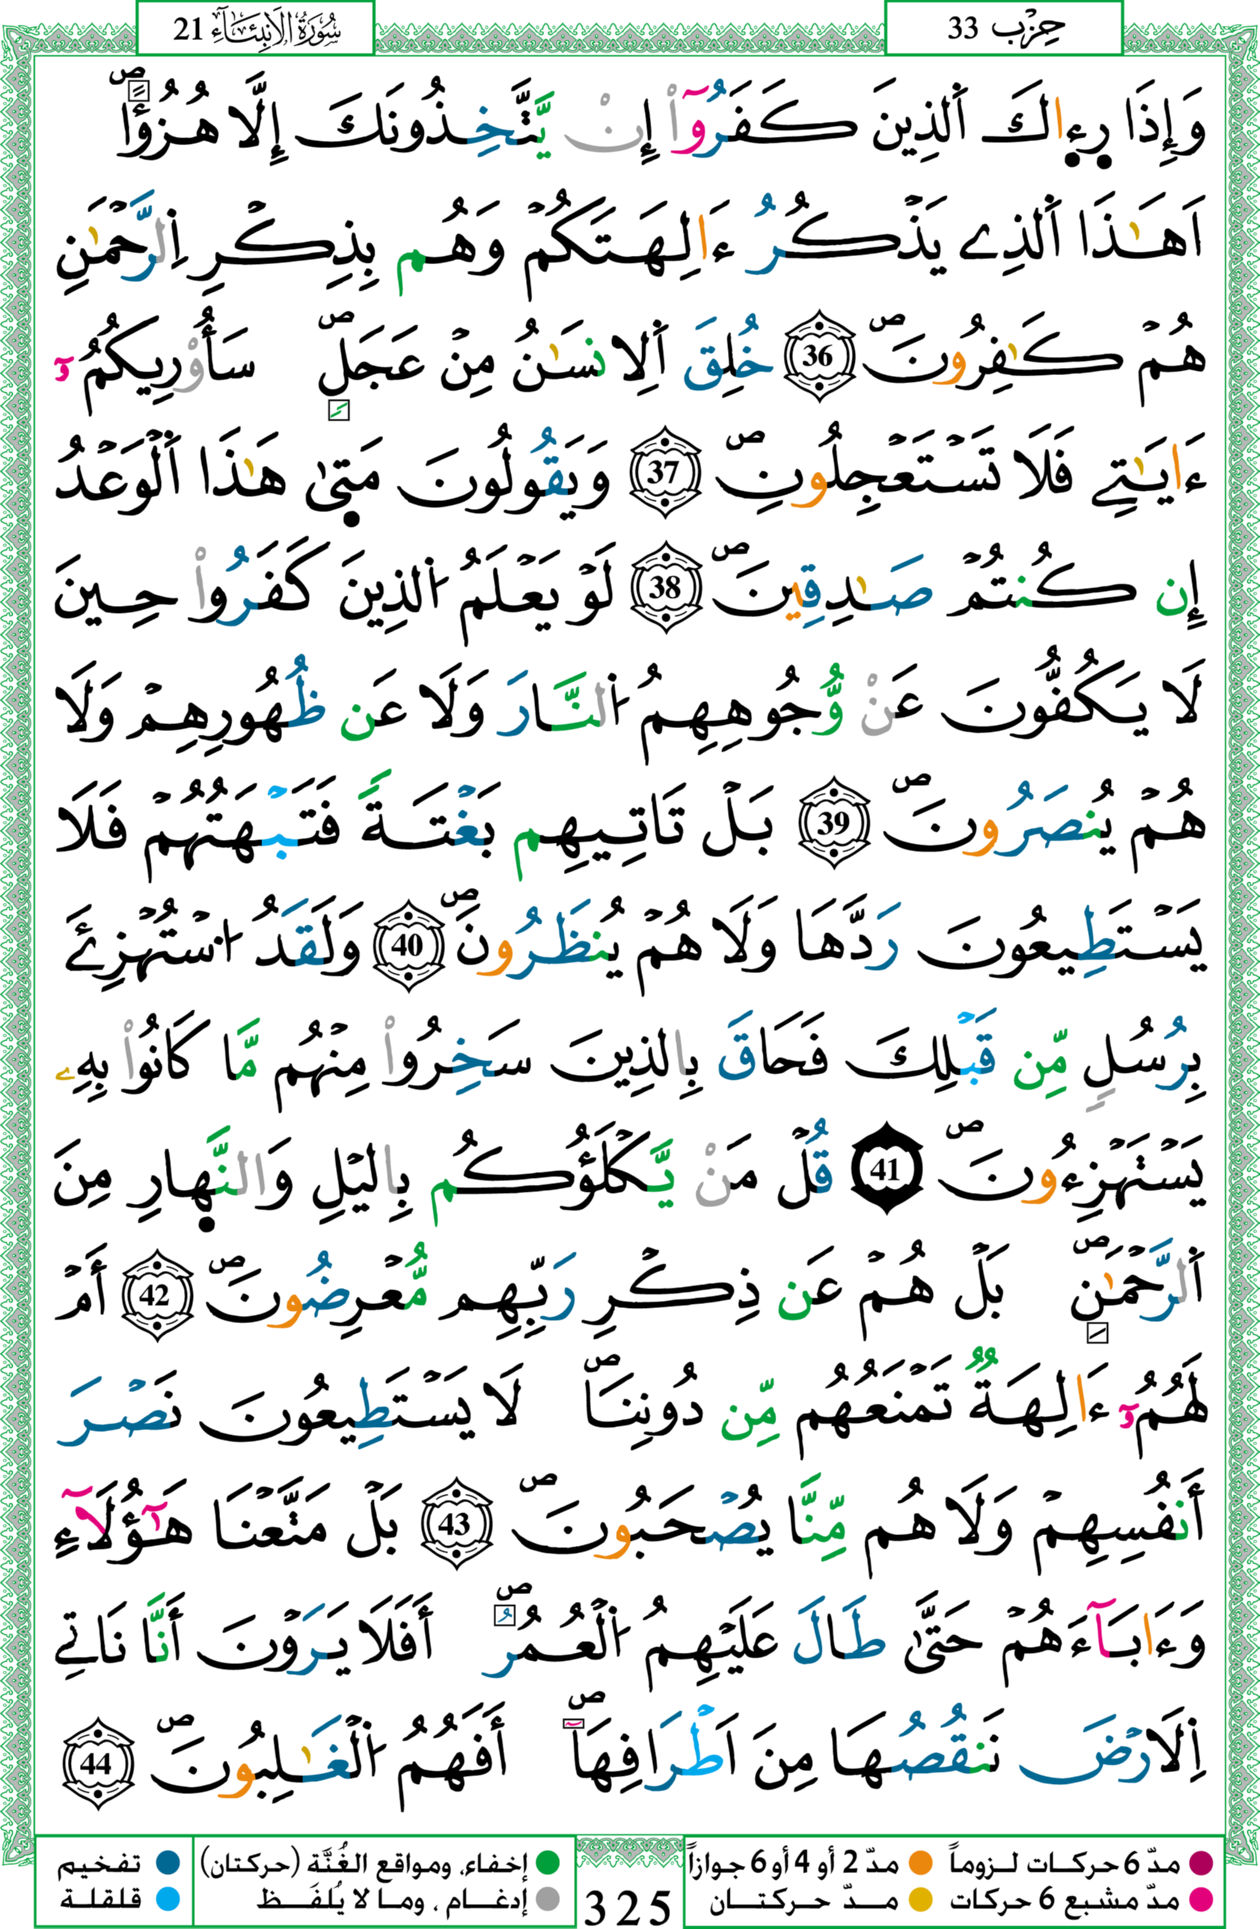 حِزْب 33
سُورَةُ الْاَنبِيَآءِ 21
وَإِذَا رِءٍاكَ اَ۬لذِينَ كَفَرُوٓاْ إِنْ يَّتَّخِذُونَكَ إِلَّا هُزُؤاًۖ
اَهَٰذَا اَ۬لذِے يَذْكُرُ ءَالِهَتَكُمْ وَهُم بِذِكْرِ اِ۬لرَّحْمَٰنِ
هُمْ كَٰفِرُونَۖ 36 خُلِقَ اَ۬لِانسَٰنُ مِنْ عَجَلٖۖ سَأُوْرِيكُمُۥٓ
ءَايَٰتِے فَلَا تَسْتَعْجِلُونِۖ 37 وَيَقُولُونَ مَتَىٰ هَٰذَا اَ۬لْوَعْدُ
إِن كُنتُمْ صَٰدِقِينَۖ 38 لَوْ يَعْلَمُ اُ۬لذِينَ كَفَرُواْ حِينَ
لَا يَكُفُّونَ عَنْ وُّجُوهِهِمُ اُ۬لنَّارَ وَلَا عَن ظُهُورِهِمْ وَلَا
هُمْ يُنصَرُونَۖ 39 بَلْ تَاتِيهِم بَغْتَةً فَتَبْهَتُهُمْ فَلَا
يَسْتَطِيعُونَ رَدَّهَا وَلَا هُمْ يُنظَرُونَۖ 40 وَلَقَدُ اُ۟سْتُهْزِئَ
بِرُسُلٍ مِّن قَبْلِكَ فَحَاقَ بِالذِينَ سَخِرُواْ مِنْهُم مَّا كَانُواْ بِهِۦ
يَسْتَهْزِءُونَۖ 41 قُلْ مَنْ يَّكْلَؤُكُم بِاليْلِ وَالنَّهِارِ مِنَ
اَ۬لرَّحْمَٰنِۖ بَلْ هُمْ عَن ذِكْرِ رَبِّهِم مُّعْرِضُونَۖ 42 أَمْ
لَهُمُۥٓ ءَالِهَةٌ تَمْنَعُهُم مِّن دُونِنَاۖ لَا يَسْتَطِيعُونَ نَصْرَ
أَنفُسِهِمْ وَلَا هُم مِّنَّا يُصْحَبُونَۖ 43 بَلْ مَتَّعْنَا هَٰٓؤُلَآءِ
وَءَابَآءَهُمْ حَتَّىٰ طَالَ عَلَيْهِمُ اُ۬لْعُمُرُۖ أَفَلَا يَرَوْنَ أَنَّا نَاتِے
اِ۬لَارْضَ نَنقُصُهَا مِنَ اَطْرَافِهَآۖ أَفَهُمُ اُ۬لْغَٰلِبُونَۖ 44
مدّ 6 حركات لـزوماً مدّ 2 أو 4 أو 6 جوازاً
مدّ مشبع 6 حركات مـدّ حركتـان
325
إخفاء، ومواقع الغُنَّة (حركتان) تفخيم
إدغام ، وما لا يُلفَـظ قلقلة